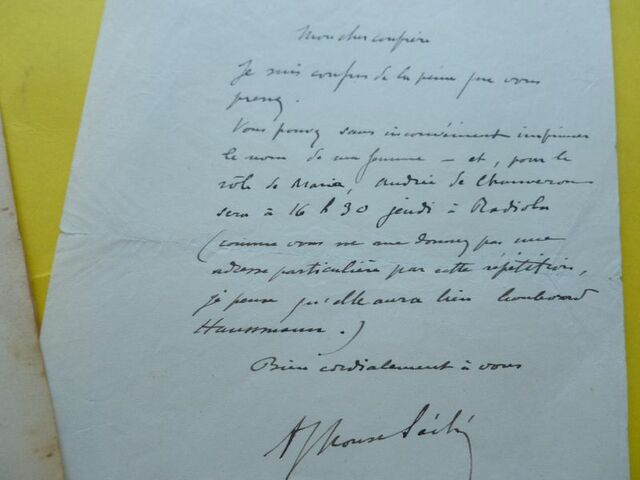 Mon cher confrère
Je suis confus de la peine que vous
prenez.
Vous pouvez sans inconvénient imprimer
le nom de ma femme — et, pour le
rôle de Maria, Andrée de Chauveron
sera à 16 h 30 jeudi à Radiola
(comme vous ne me donnez pas une
adresse particulière par cette répétition,
je pense qu'elle aura lieu boulevard
Haussmann.)
Bien cordialement à vous
Alphonse Séché